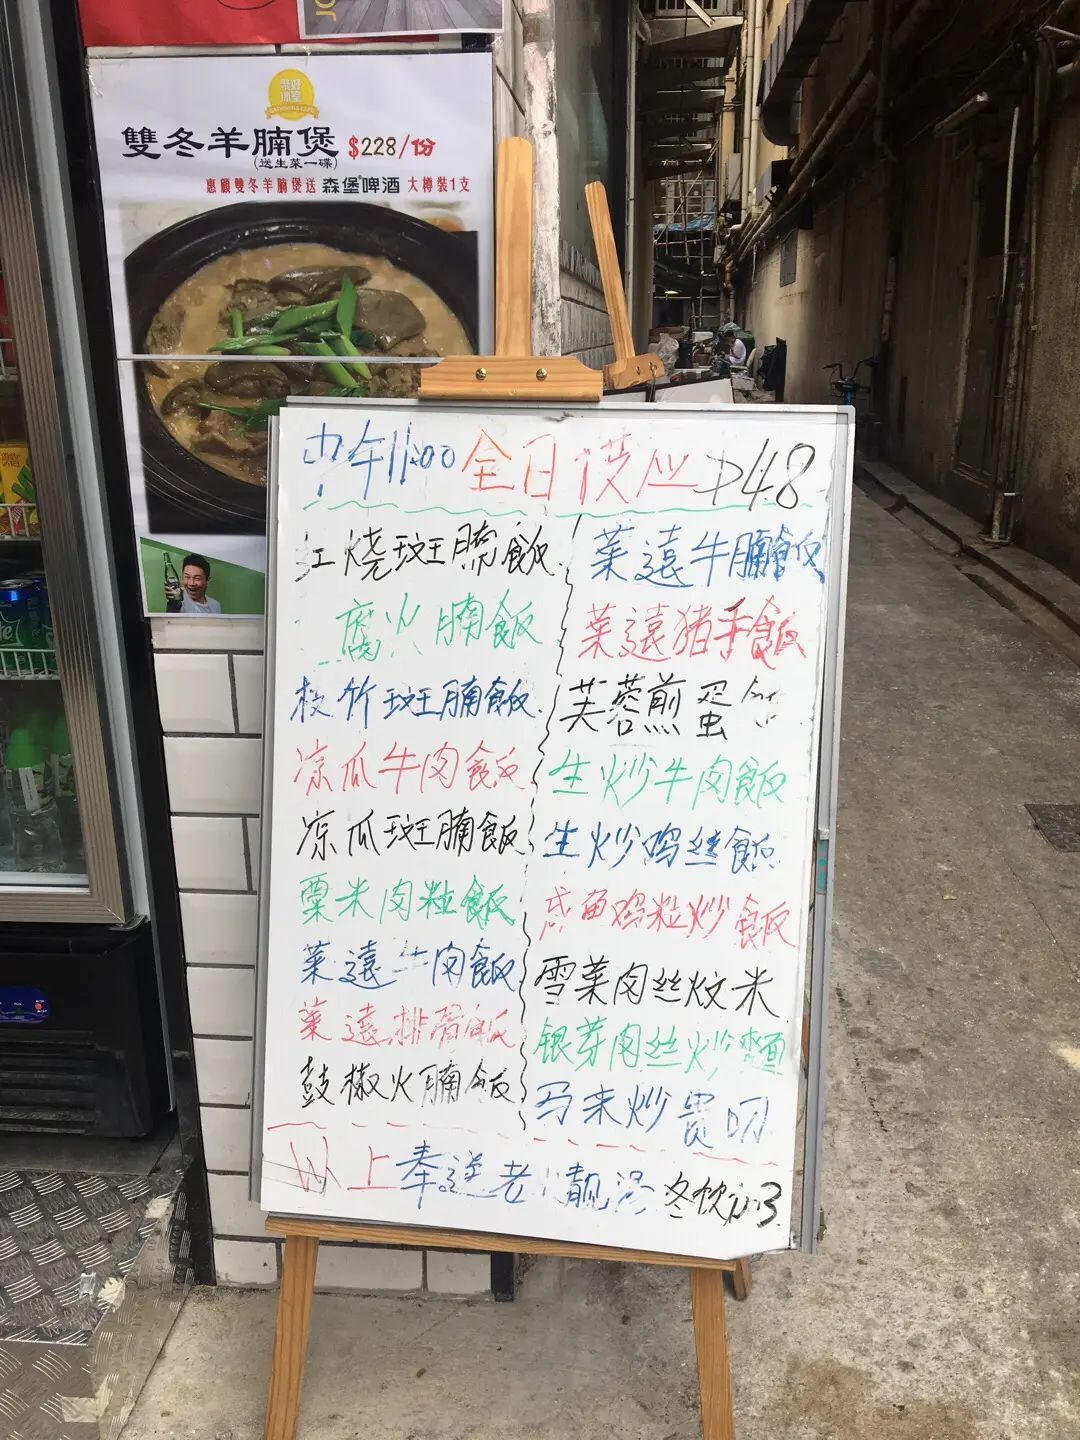 聚好
冰室
雙冬羊腩煲 $228/份
(送生菜一碟)
惠顧雙冬羊腩煲送 森堡啤酒 大樽裝1支
中午11:00 全日供应 P48
红烧斑腩飯
腐火腩飯
枝竹斑腩飯
凉瓜牛肉飯
凉瓜斑腩飯
粟米肉粒飯
菜遠牛肉飯
菜遠排骨飯
鼓椒火腩飯
菜遠牛腩飯
菜遠猪手飯
芙蓉煎蛋飯
生炒牛肉飯
生炒鸡丝飯
咸鱼鸡粒炒飯
雪菜肉丝炆米
银芽肉丝炒麵
马来炒贵刁
以上奉送老火靚汤 冬饮加3